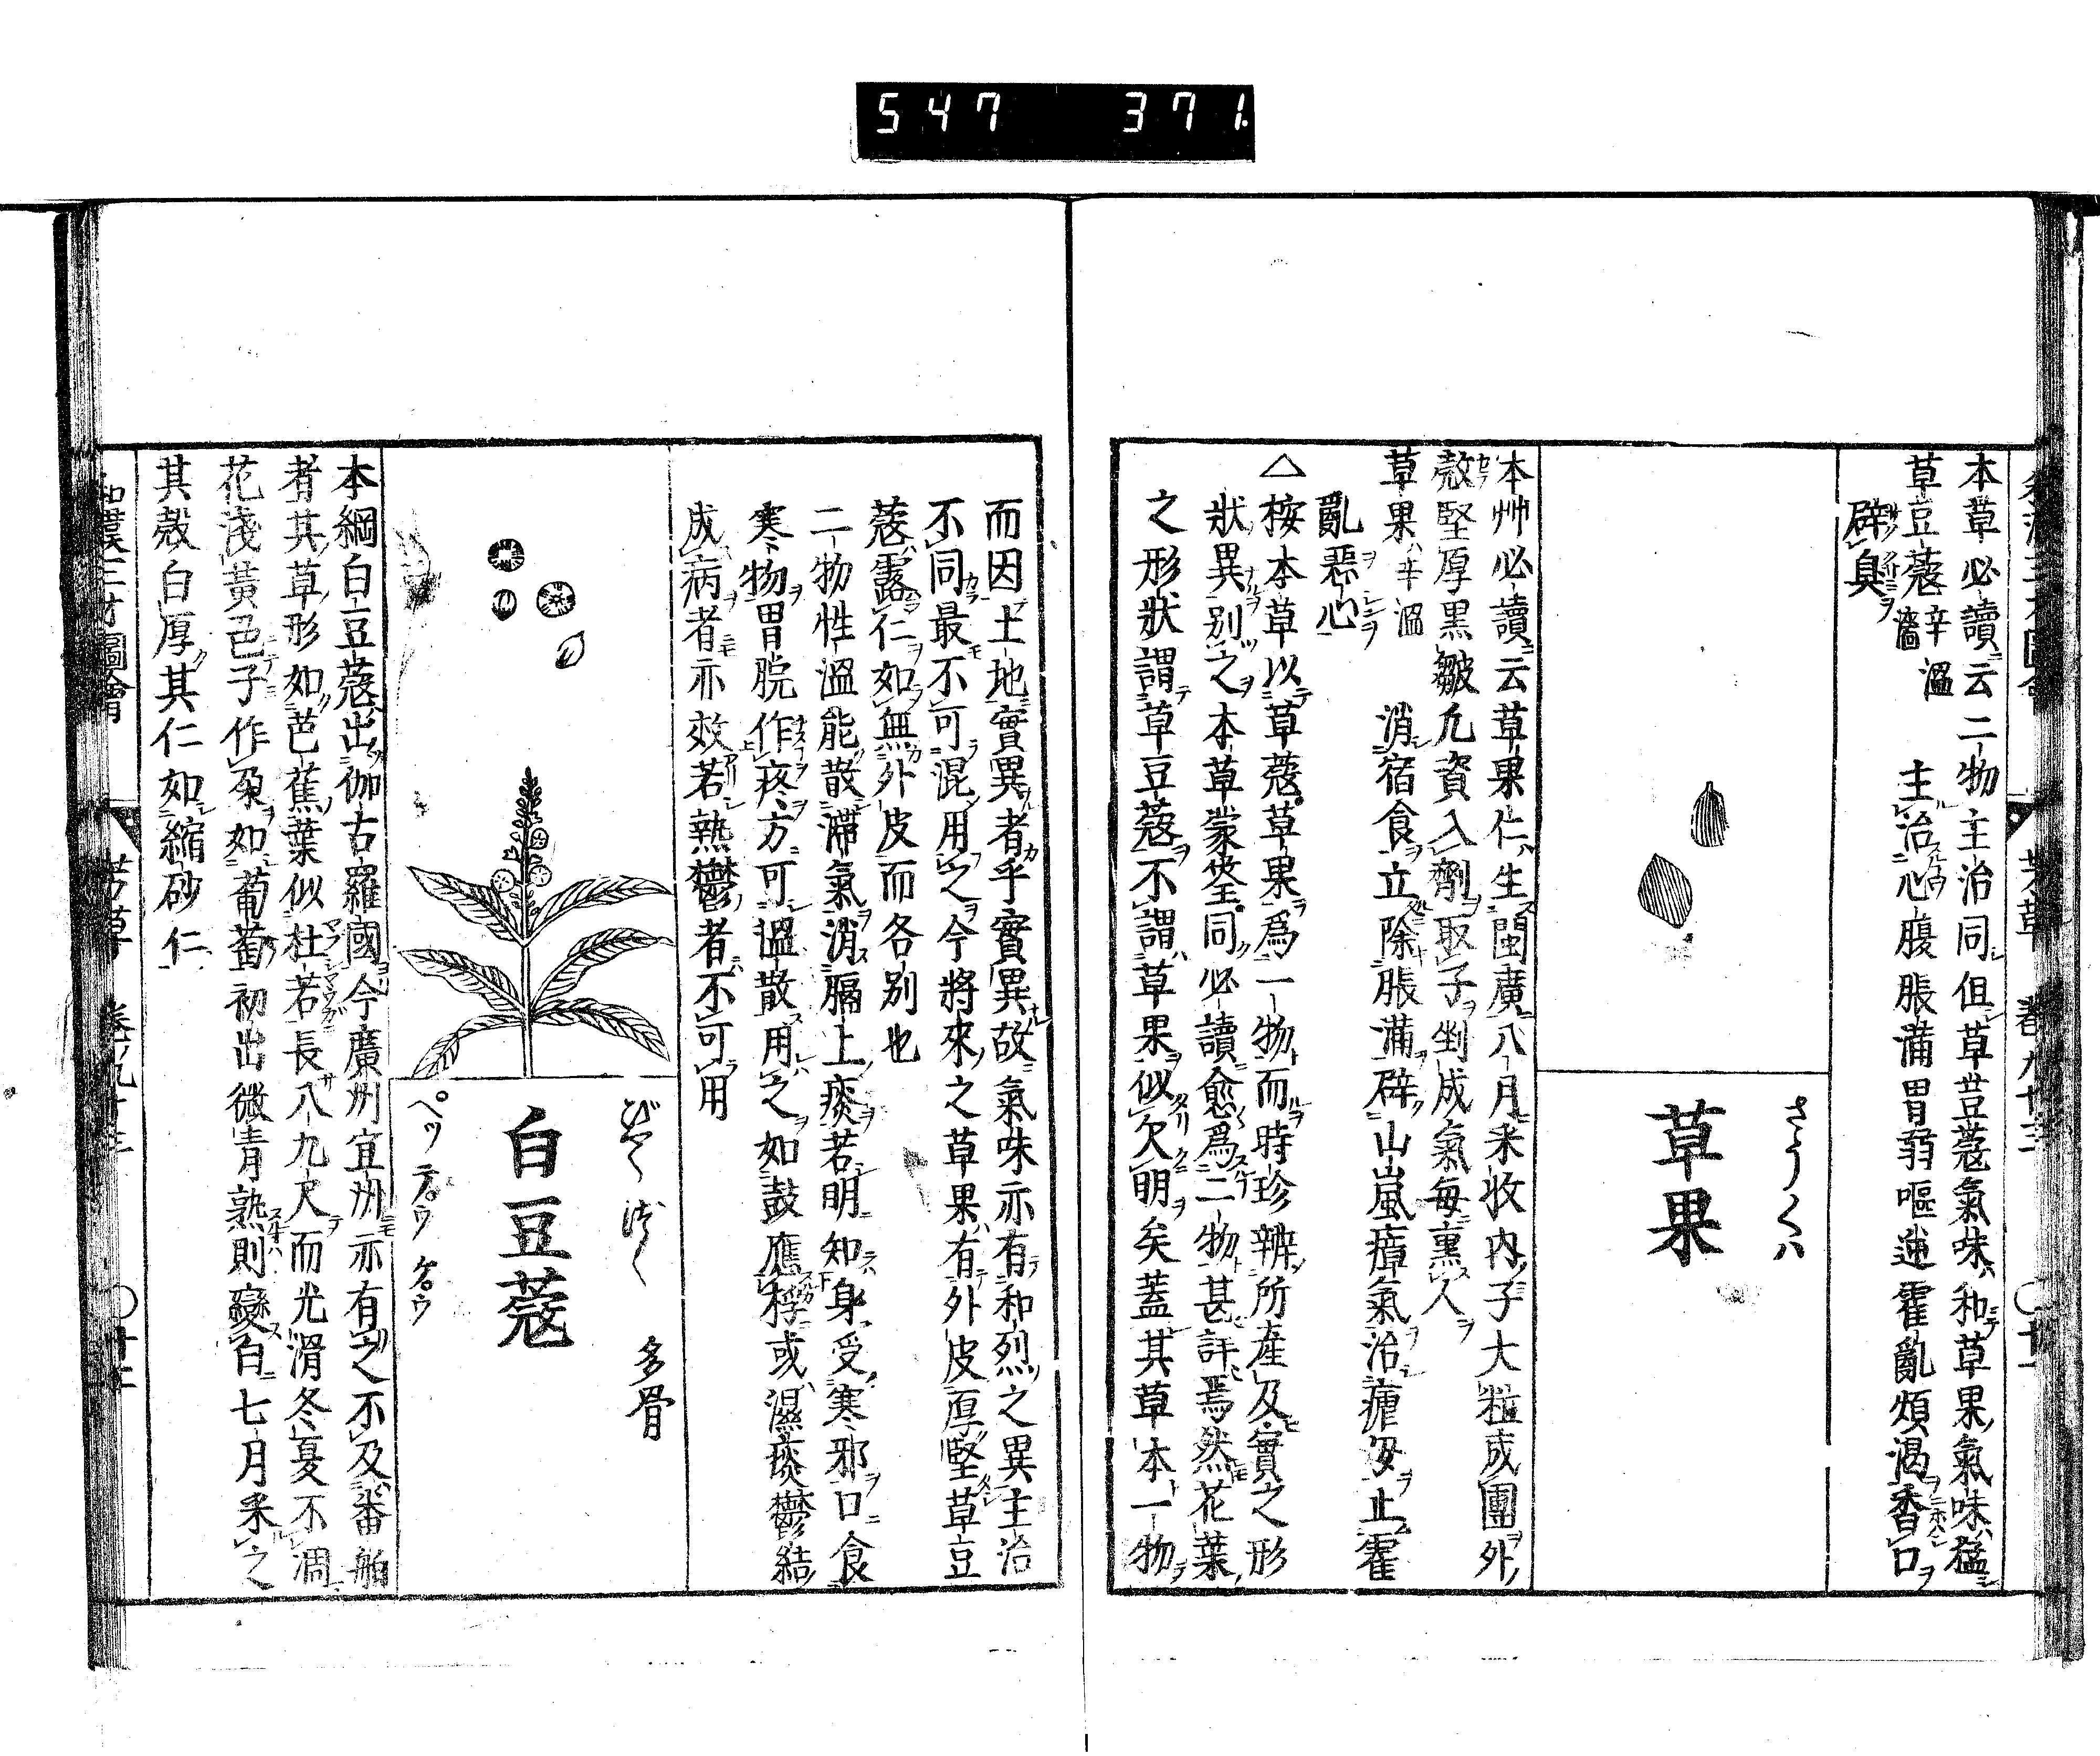 547 371
本草必讀云二物主治同但草荳蔻氣味和草果氣味猛
草豆蔻 辛溫濇 主治心腹脹滿胃弱嘔逆霍亂煩渴香口
辟臭
さうくハ
草果
本艸必讀云草果仁生閩廣八月采收内子大粒成團外
殼堅厚黒皺凡資入劑取子剉成氣毎熏人
草果 辛溫 消宿食立除脹滿辟山嵐瘴氣治瘧毎止霍
亂惡心
△桉本草以草蔻草果爲一物而時珍辨所產及實之形
狀異別之本草蒙筌同必讀愈爲二物甚詳焉然花葉
之形狀謂草豆蔻不謂草果似欠明矣蓋其草本一物
而因土地實異者乎實異故氣味亦有和烈之異主治
不同最不可混用之今將來之草果有外皮厚堅草豆
蔻露仁如無外皮而各別也
二物性溫能散滯氣消膈上痰若明知身受寒邪口食
寒物胃脘作疼方可溫散用之如鼓應桴或濕痰鬱結
成病者亦效若熱鬱者不可用
びやくづく 多骨
白豆蔻
ペッテ゚ウケ゚ウ
本綱白豆蔻出伽古羅國今廣州宜州亦有之不及番舶
者其草形如芭蕉葉似杜若長八九尺而光滑冬夏不凋
花淺黃色子作朶如葡萄初出微青熟則變白七月采之
其殼白厚其仁如縮砂仁
和漢三才圖會 芳草 卷ノ九十三 〇廿二